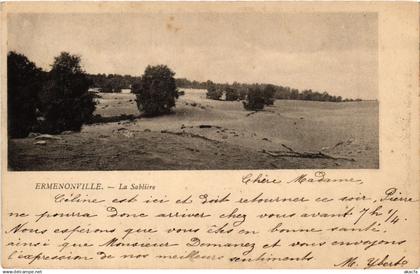 ERMENONVILLE. — La Sablière
Chère Madame,
Céline est ici et doit retourner ce soir, Pierre
ne pourra donc arriver chez vous avant 7h 1/4
Nous espérons que vous êtes en bonne santé
ainsi que Monsieur et vous envoyons
l'expression de nos meilleurs sentiments
M.